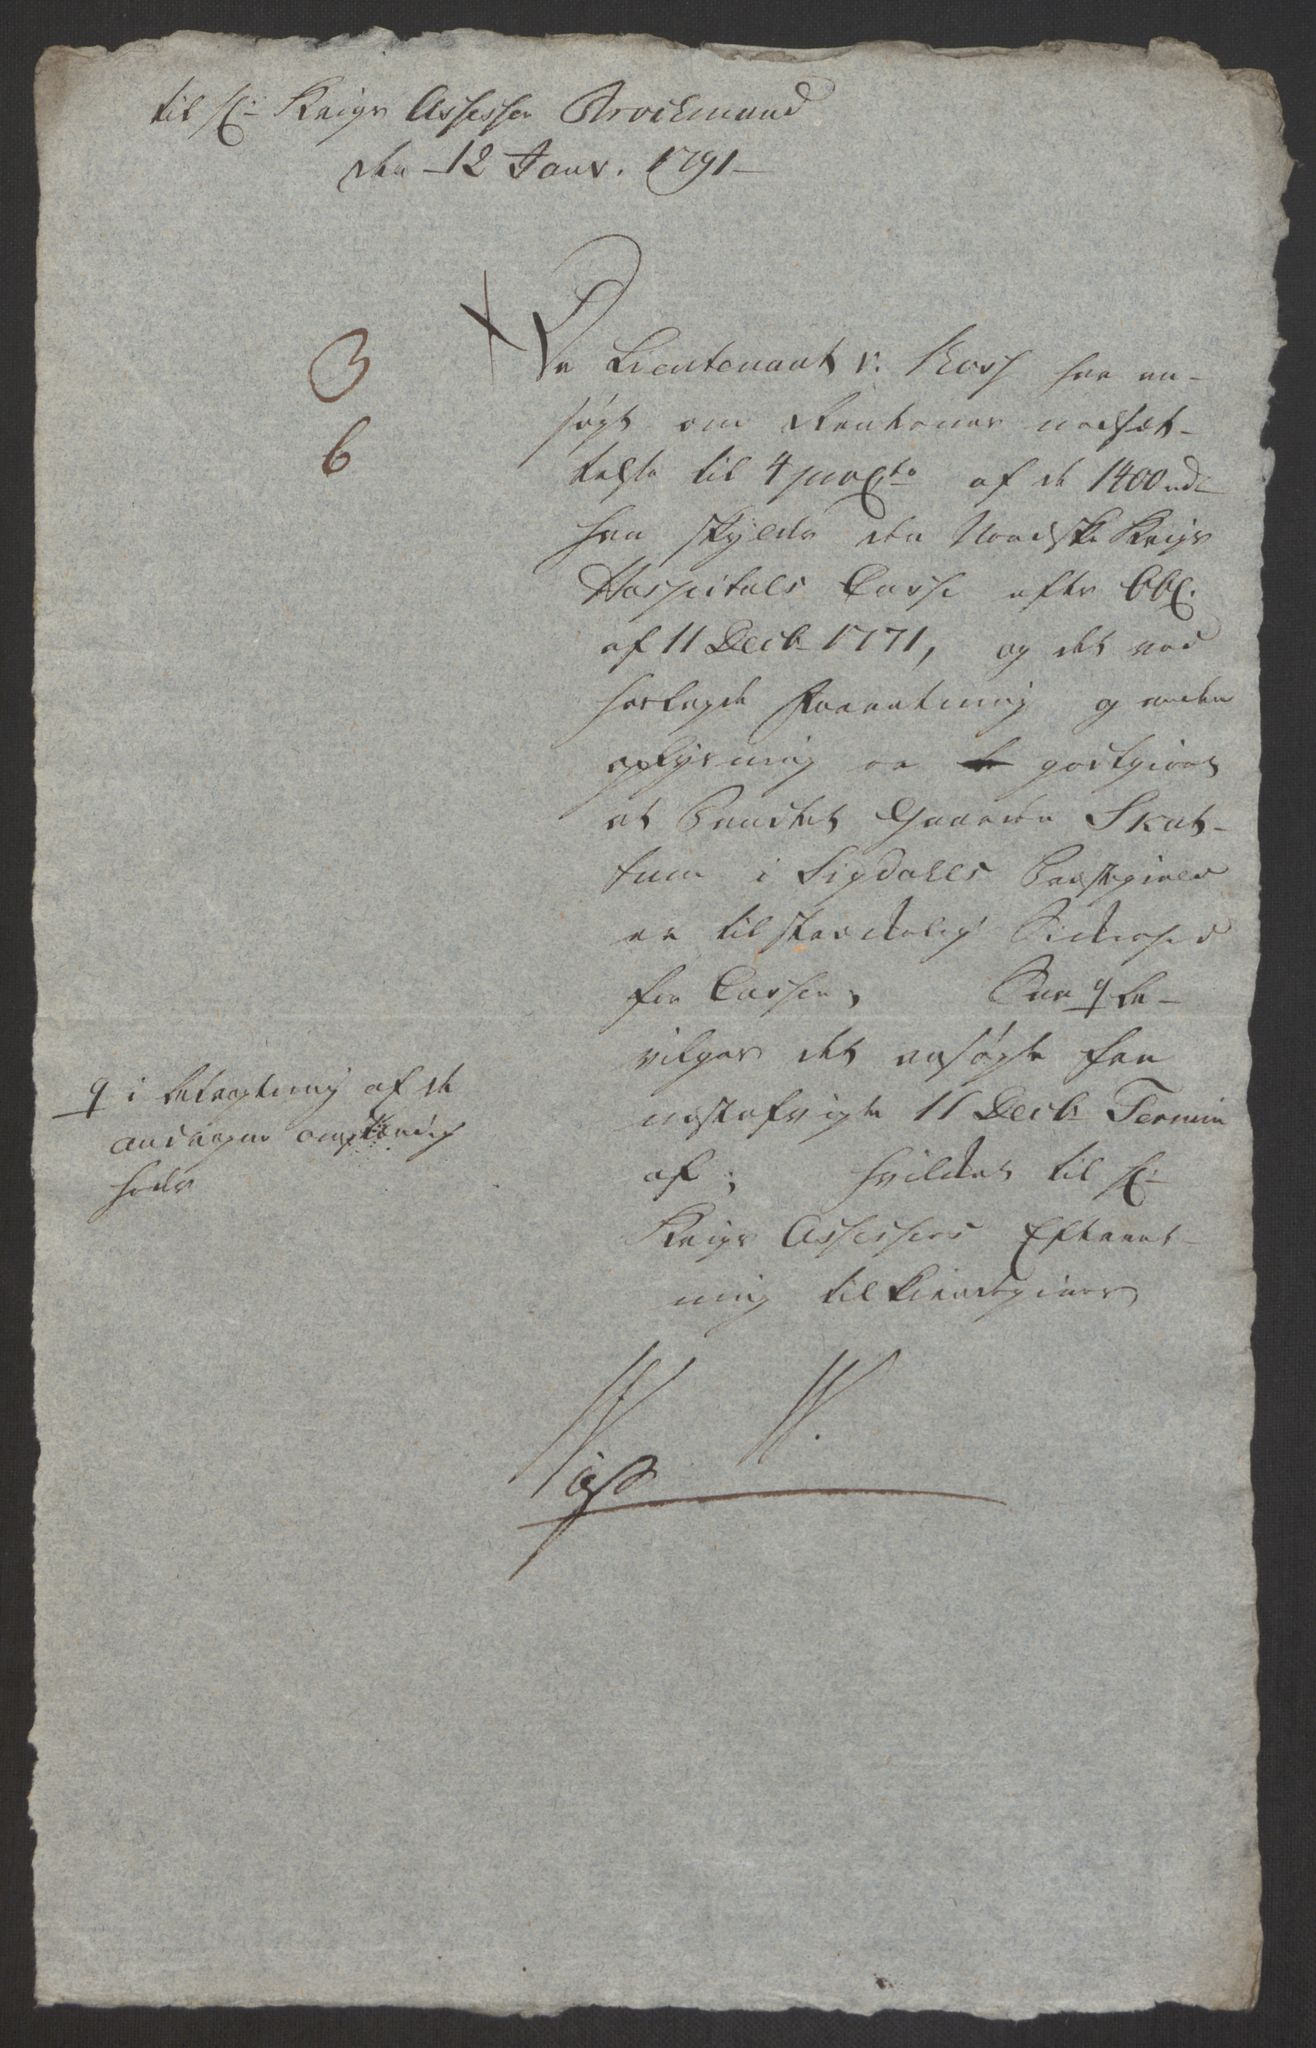 til H: Krigs Assessor Brockmand
den 12 Janv. 1791
3
6
Da Lieutenant v. Koss har an-
søgt om Renternes nedsæt-
telse til 4 proCto af de 1400 rd
han skylder den Nordske Krigs
Hospitals Casse efter Obl.
af 11 Decb 1771, og det ved
forlagde Forretning og anden
oplysning er godtgiort
at Pandtet Gaarden Skat-
tum i Sigdahls Præstegield
er tilstrækkelig Sikkerhed
for Cassen, Saa be-
vilges det ansøgte fra
næstafvigte 11 Decb Termin
af; hvilket til H:
Krigs Assessors Efterret-
ning tilkiendegives
i betragtning af de
andragne omstændig
heder